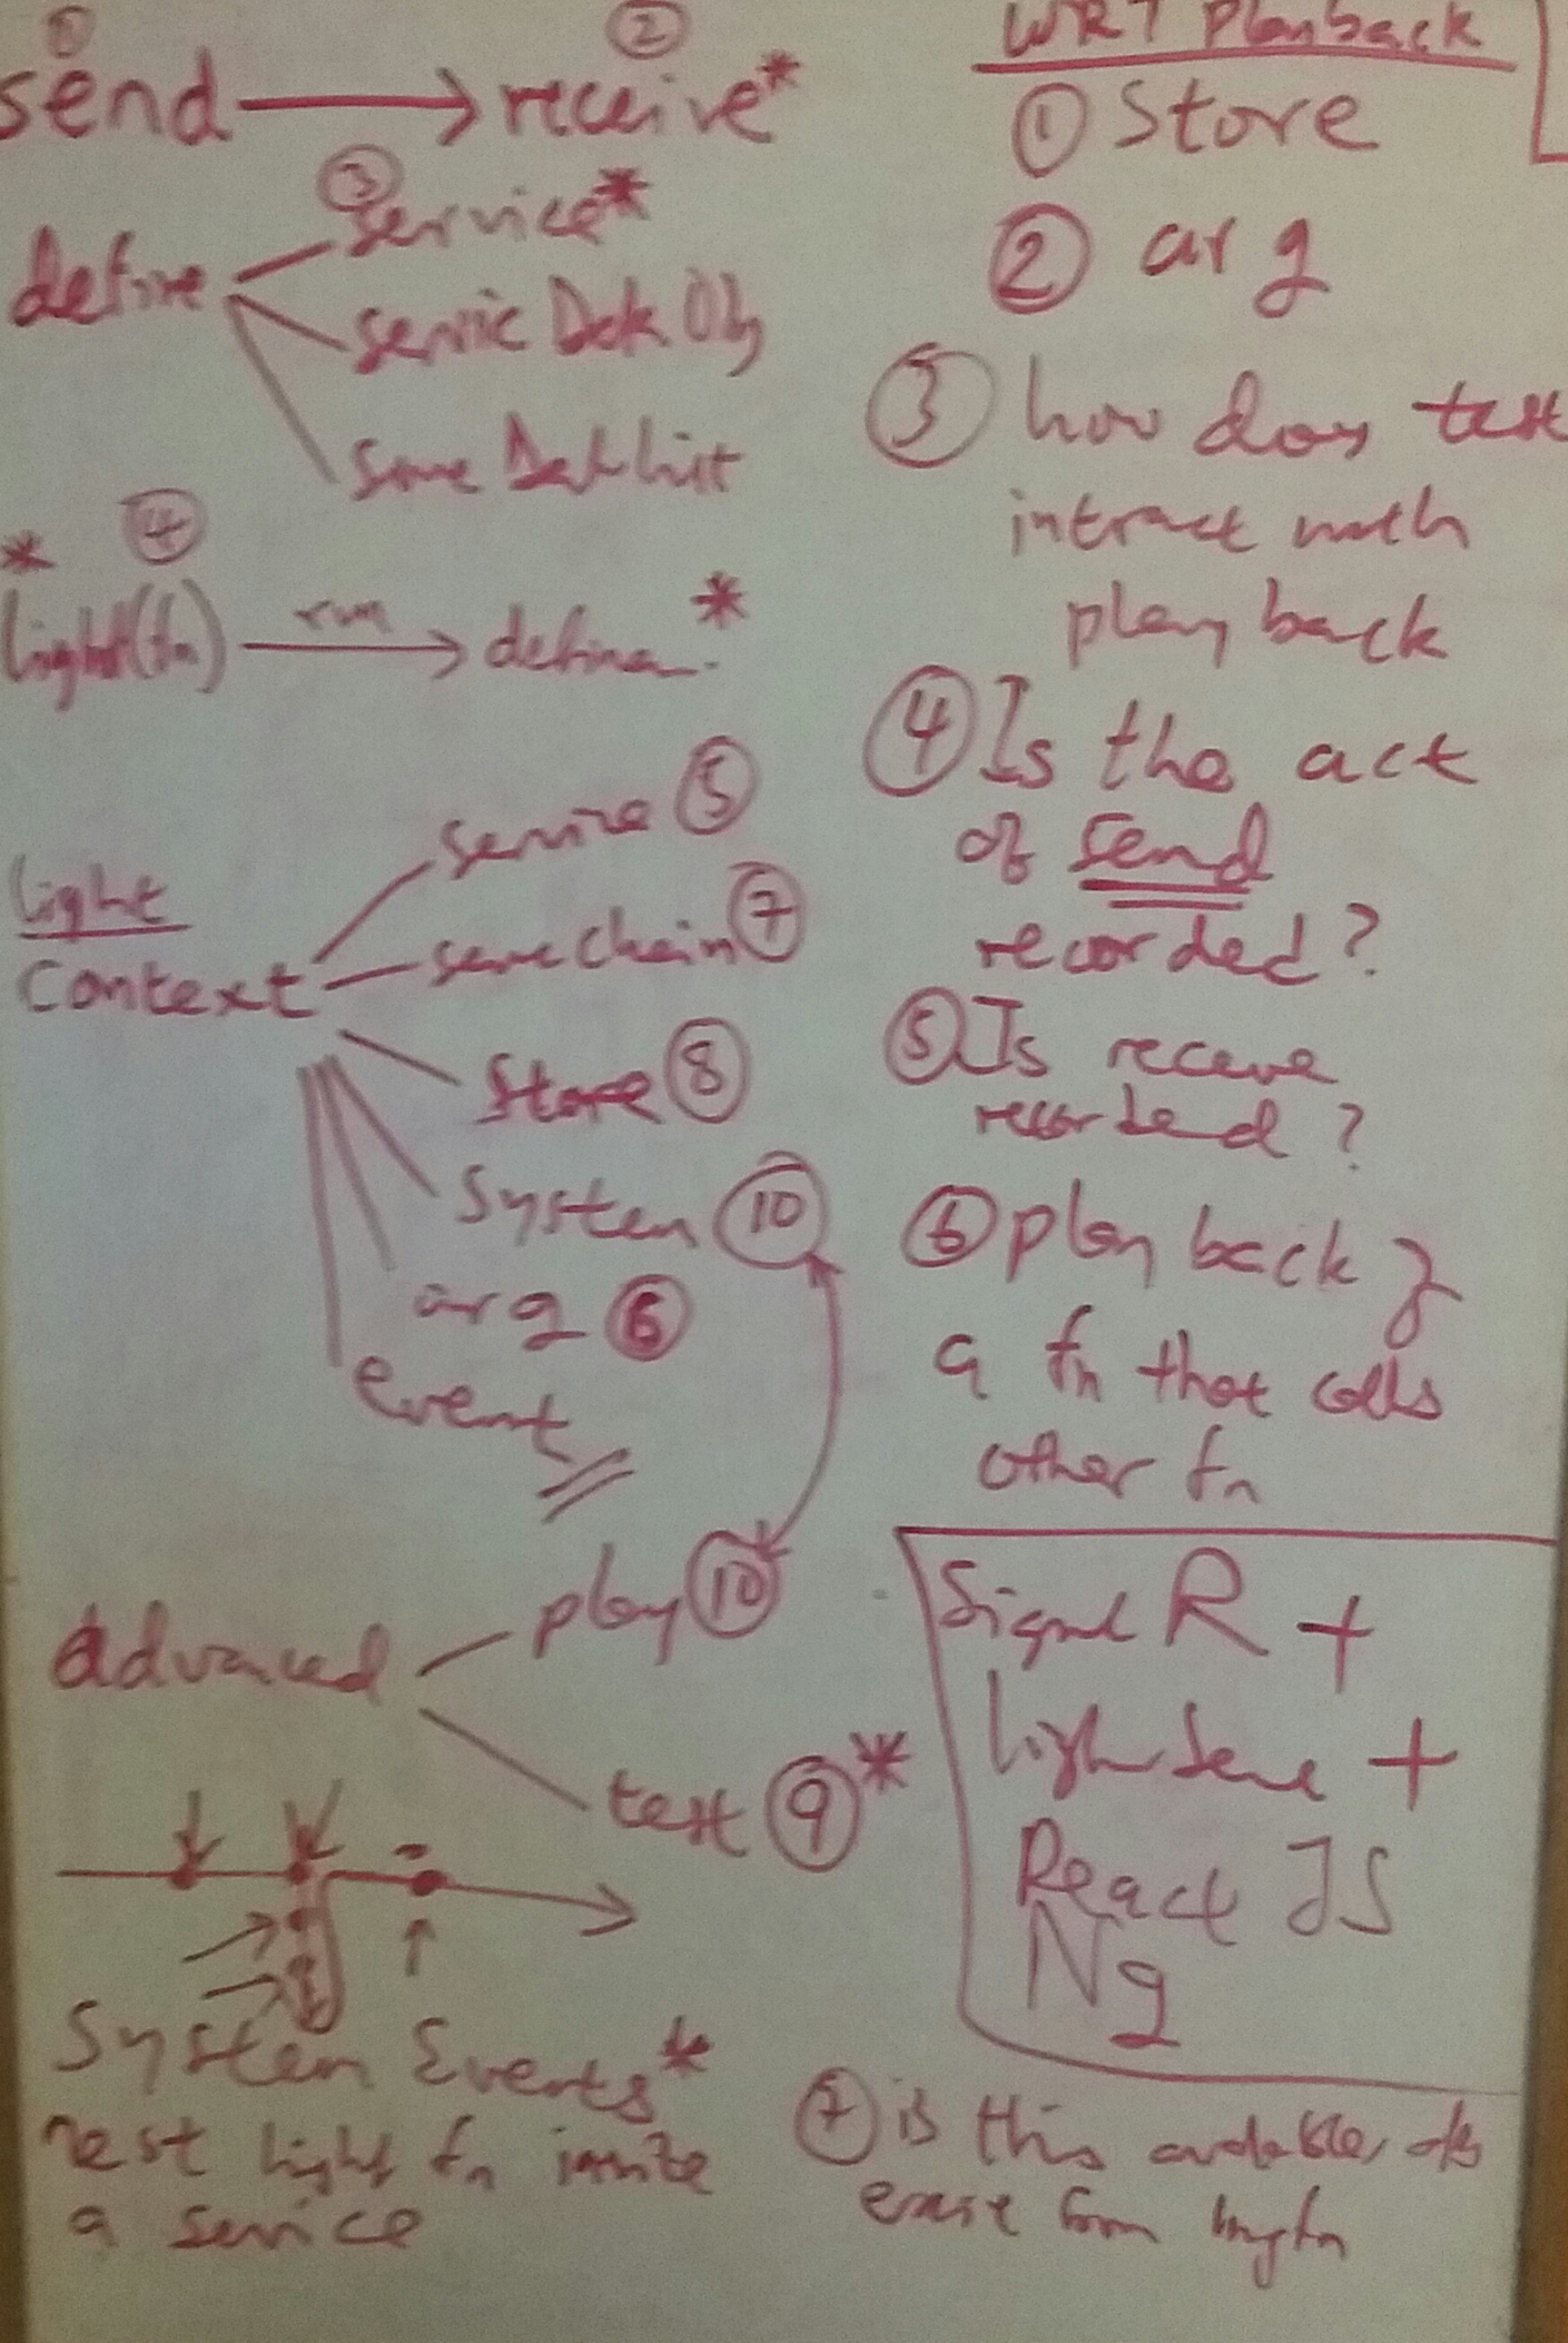 ① ②
send → receive*
③
define service*
servic Data Obj
④
* light(fn) run → define *
service ⑤
light
context
serve chain ⑦
Store ⑧
System ⑩
arg ⑥
event
Advanced
play ⑩
test ⑨ *
System Events *
test light fn inside
a service
WRT Playback
① Store
② arg
③ how does test
intract with
play back
④ Is the act
of send
recorded?
⑤ Is receive
recorded?
⑥ play back of
a fn that calls
other fn
Signal R +
light Serve +
React JS
Ng
⑦ is this available
from